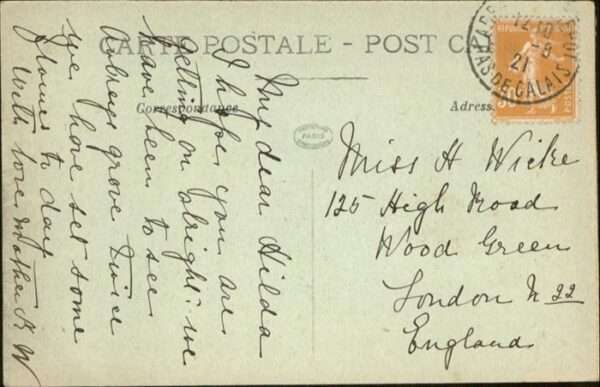 CARTE POSTALE - POST CA
Correspondance
Adresse
PARIS
12-10
-8
21
PAS DE CALAIS
POSTES
My dear Hilda
I hope you are
getting on alright: we
have been to see
Aubreys grove twice
we have set some
flowers to day
With love Mother K W
Miss H Wicke
125 High Road
Wood Green
London N 22
England